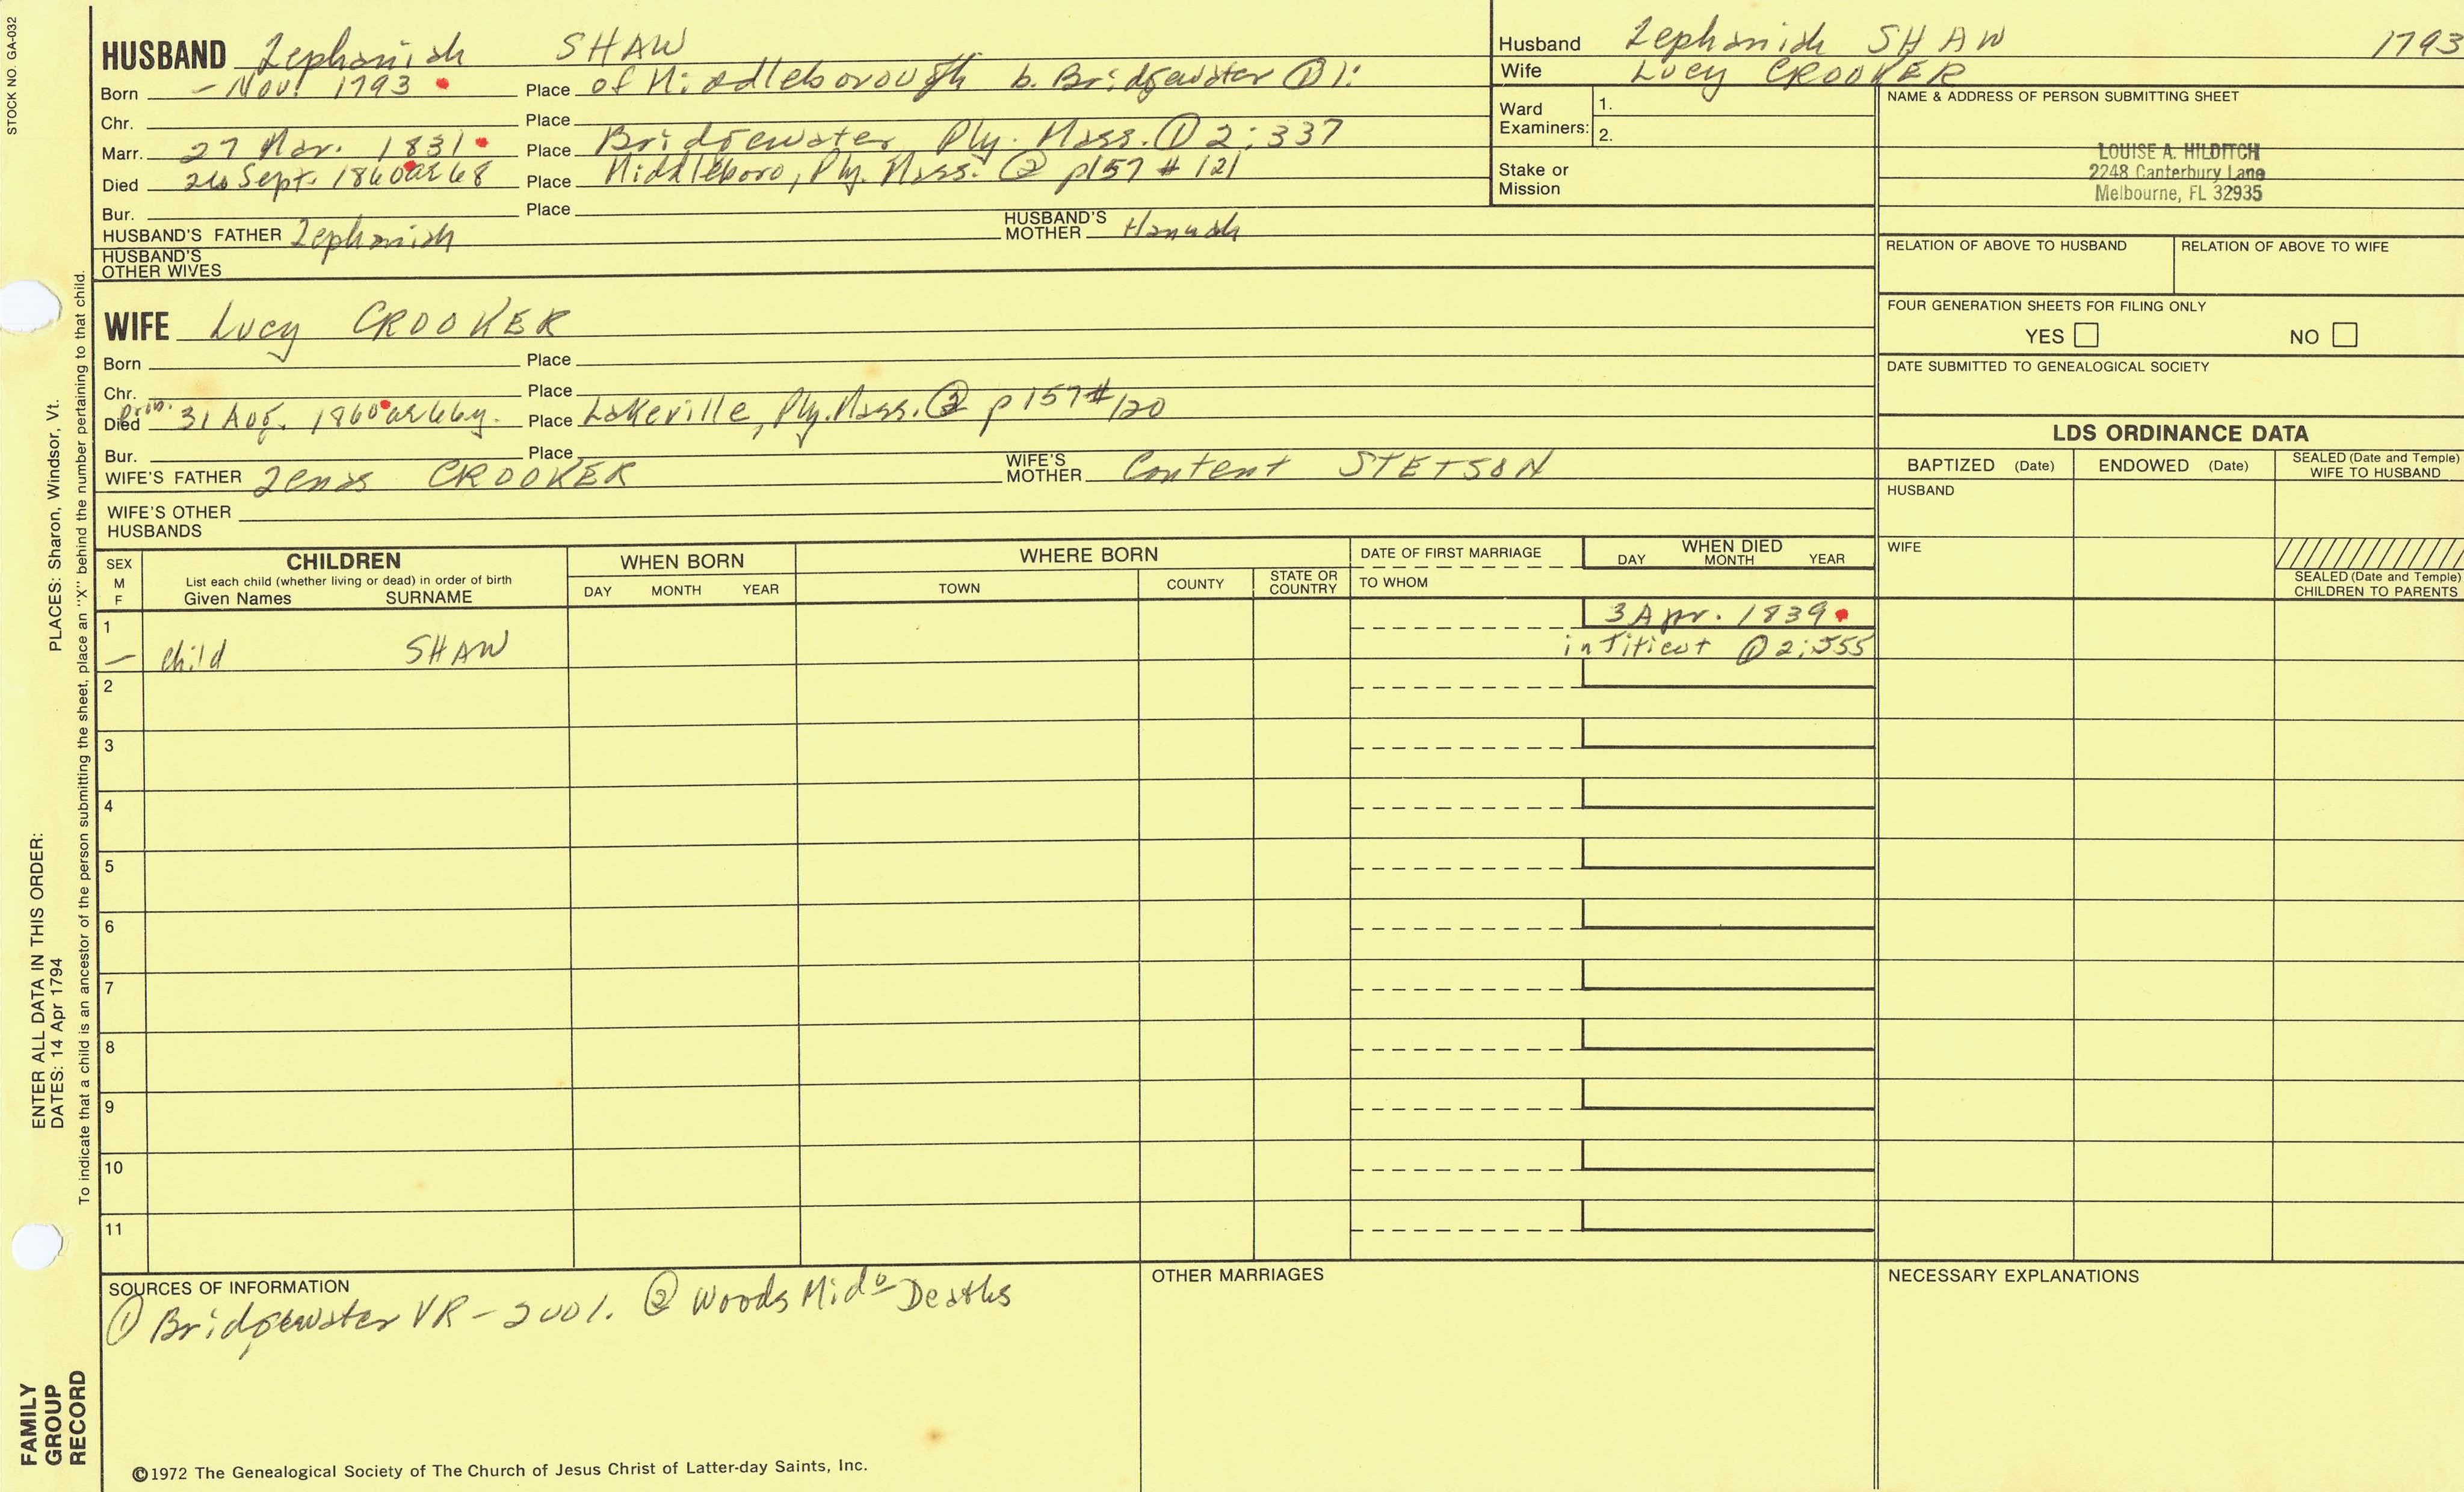 STOCK NO. GA-032
HUSBAND Zephaniah SHAW
Born - Nov. 1793 Place of Middleborough b. Bridgewater ① 1:
Chr. Place
Marr. 27 Mar. 1831 Place Bridgewater Ply. Mass. ① 2:337
Died Sept. 1860 ae 68 Place Middleboro, Ply. Mass. ② p157 # 121
Bur. Place
HUSBAND'S FATHER Zephaniah HUSBAND'S MOTHER Hannah
HUSBAND'S OTHER WIVES
Husband Zephaniah SHAW 1793
Wife Lucy CROOKER
Ward Examiners: 1.
2.
Stake or Mission
NAME & ADDRESS OF PERSON SUBMITTING SHEET
LOUISE A. HILDITCH
2248 Canterbury Lane
Melbourne, FL 32935
RELATION OF ABOVE TO HUSBAND RELATION OF ABOVE TO WIFE
FOUR GENERATION SHEETS FOR FILING ONLY
YES NO
DATE SUBMITTED TO GENEALOGICAL SOCIETY
WIFE Lucy CROOKER
Born Place
Chr. Place
Died Prob. 31 Aug. 1860 ae 66y. Place Lakeville, Ply. Mass. ② p157 # 120
Bur. Place
WIFE'S FATHER Zenas CROOKER WIFE'S MOTHER Content STETSON
WIFE'S OTHER HUSBANDS
LDS ORDINANCE DATA
BAPTIZED (Date) ENDOWED (Date) SEALED (Date and Temple) WIFE TO HUSBAND
HUSBAND
WIFE
SEALED (Date and Temple) CHILDREN TO PARENTS
SEX M F
CHILDREN
List each child (whether living or dead) in order of birth
Given Names SURNAME
WHEN BORN
DAY MONTH YEAR
WHERE BORN
TOWN COUNTY STATE OR COUNTRY
DATE OF FIRST MARRIAGE
TO WHOM
WHEN DIED
DAY MONTH YEAR
1 3 Apr. 1839
— child SHAW in Titicut ① 2:555
2
3
4
5
6
7
8
9
10
11
SOURCES OF INFORMATION
① Bridgewater VR - 2 vol. ② Woods Mid° Deaths
OTHER MARRIAGES
NECESSARY EXPLANATIONS
©1972 The Genealogical Society of The Church of Jesus Christ of Latter-day Saints, Inc.
FAMILY GROUP RECORD
ENTER ALL DATA IN THIS ORDER:
DATES: 14 Apr 1794 PLACES: Sharon, Windsor, Vt.
To indicate that a child is an ancestor of the person submitting the sheet, place an "X" behind the number pertaining to that child.